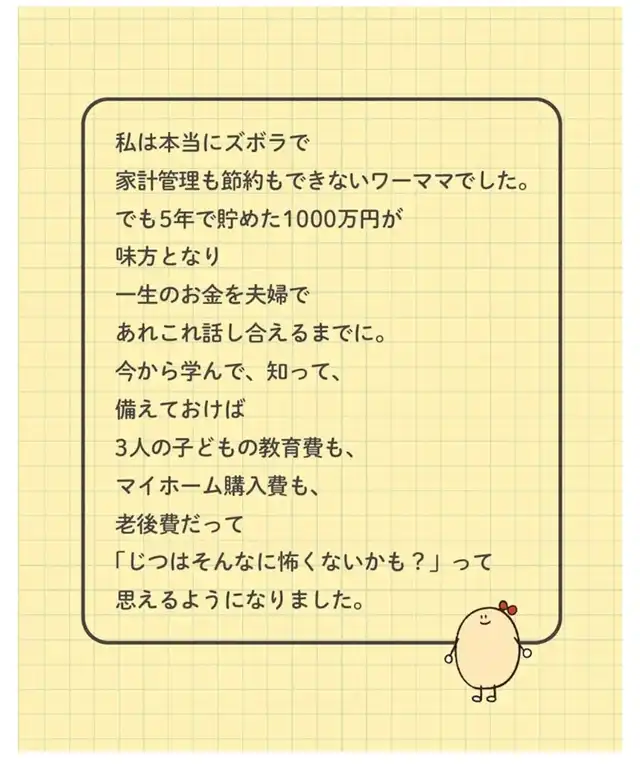 私は本当にズボラで
家計管理も節約もできないワーママでした。
でも5年で貯めた1000万円が
味方となり
一生のお金を夫婦で
あれこれ話し合えるまでに。
今から学んで、知って、
備えておけば
3人の子どもの教育費も、
マイホーム購入費も、
老後費だって
「じつはそんなに怖くないかも？」って
思えるようになりました。